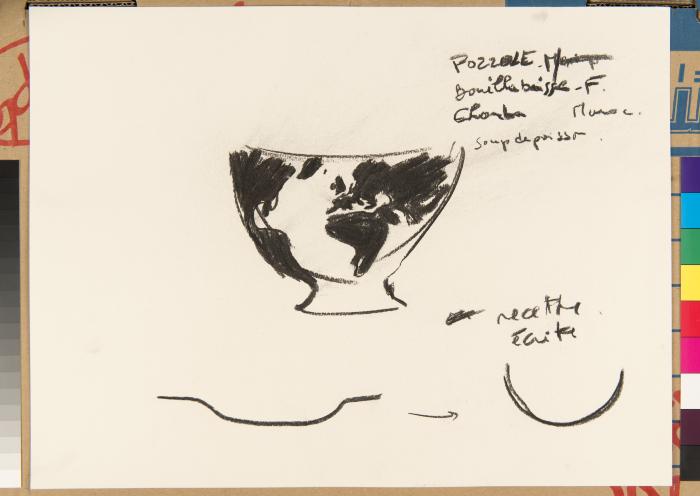 POZZOLE
Bouillabaisse - F.
Chorba Maroc.
soup de poisson.
recette
écrite